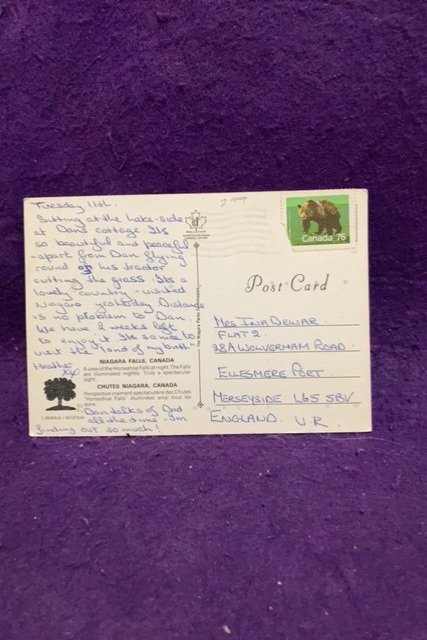 Tuesday 11th.
Sitting at the Lake-side
at Dan's cottage. Its
so beautiful and peaceful
- apart from Dan flying
round on his tractor
cutting the grass. Its a
lovely country - visited
Niagara yesterday Distance
is no problem to Dan.
We have 2 weeks left
to enjoy it. Its so nice to
visit the land of my birth
Heather
xx
NIAGARA FALLS, CANADA
A view of the Horseshoe Falls at night. The Falls
are illuminated nightly. Truly a spectacular
sight.
CHUTES NIAGARA, CANADA
Perspective vraiment spectaculaire des Chutes
"Horseshoe Falls" illuminées ainsi tous les
soirs.
Dan talks of Dad
all the time - I'm
finding out so much!
Canada 76
Post Card
Mrs Ina Dewar.
Flat 2
88A Wolverham Road.
Ellesmere Port
Merseyside L65 5BV
England. U.K.